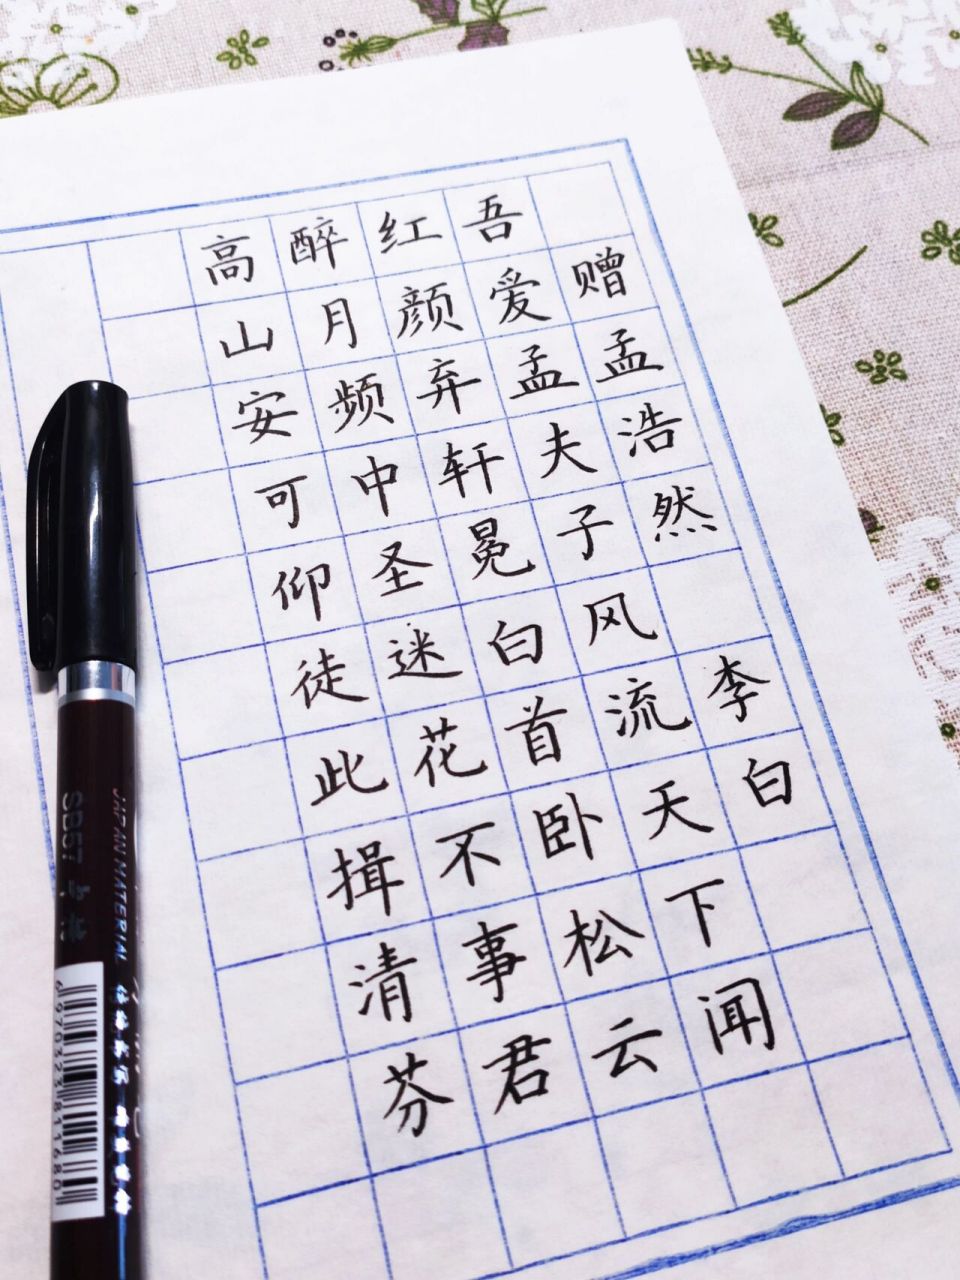 赠孟浩然 李白
吾爱孟夫子风流天下闻
红颜弃轩冕白首卧松云
醉月频中圣迷花不事君
高山安可仰徒此揖清芬
JAPAN MATERIAL
SB57
6970323811680